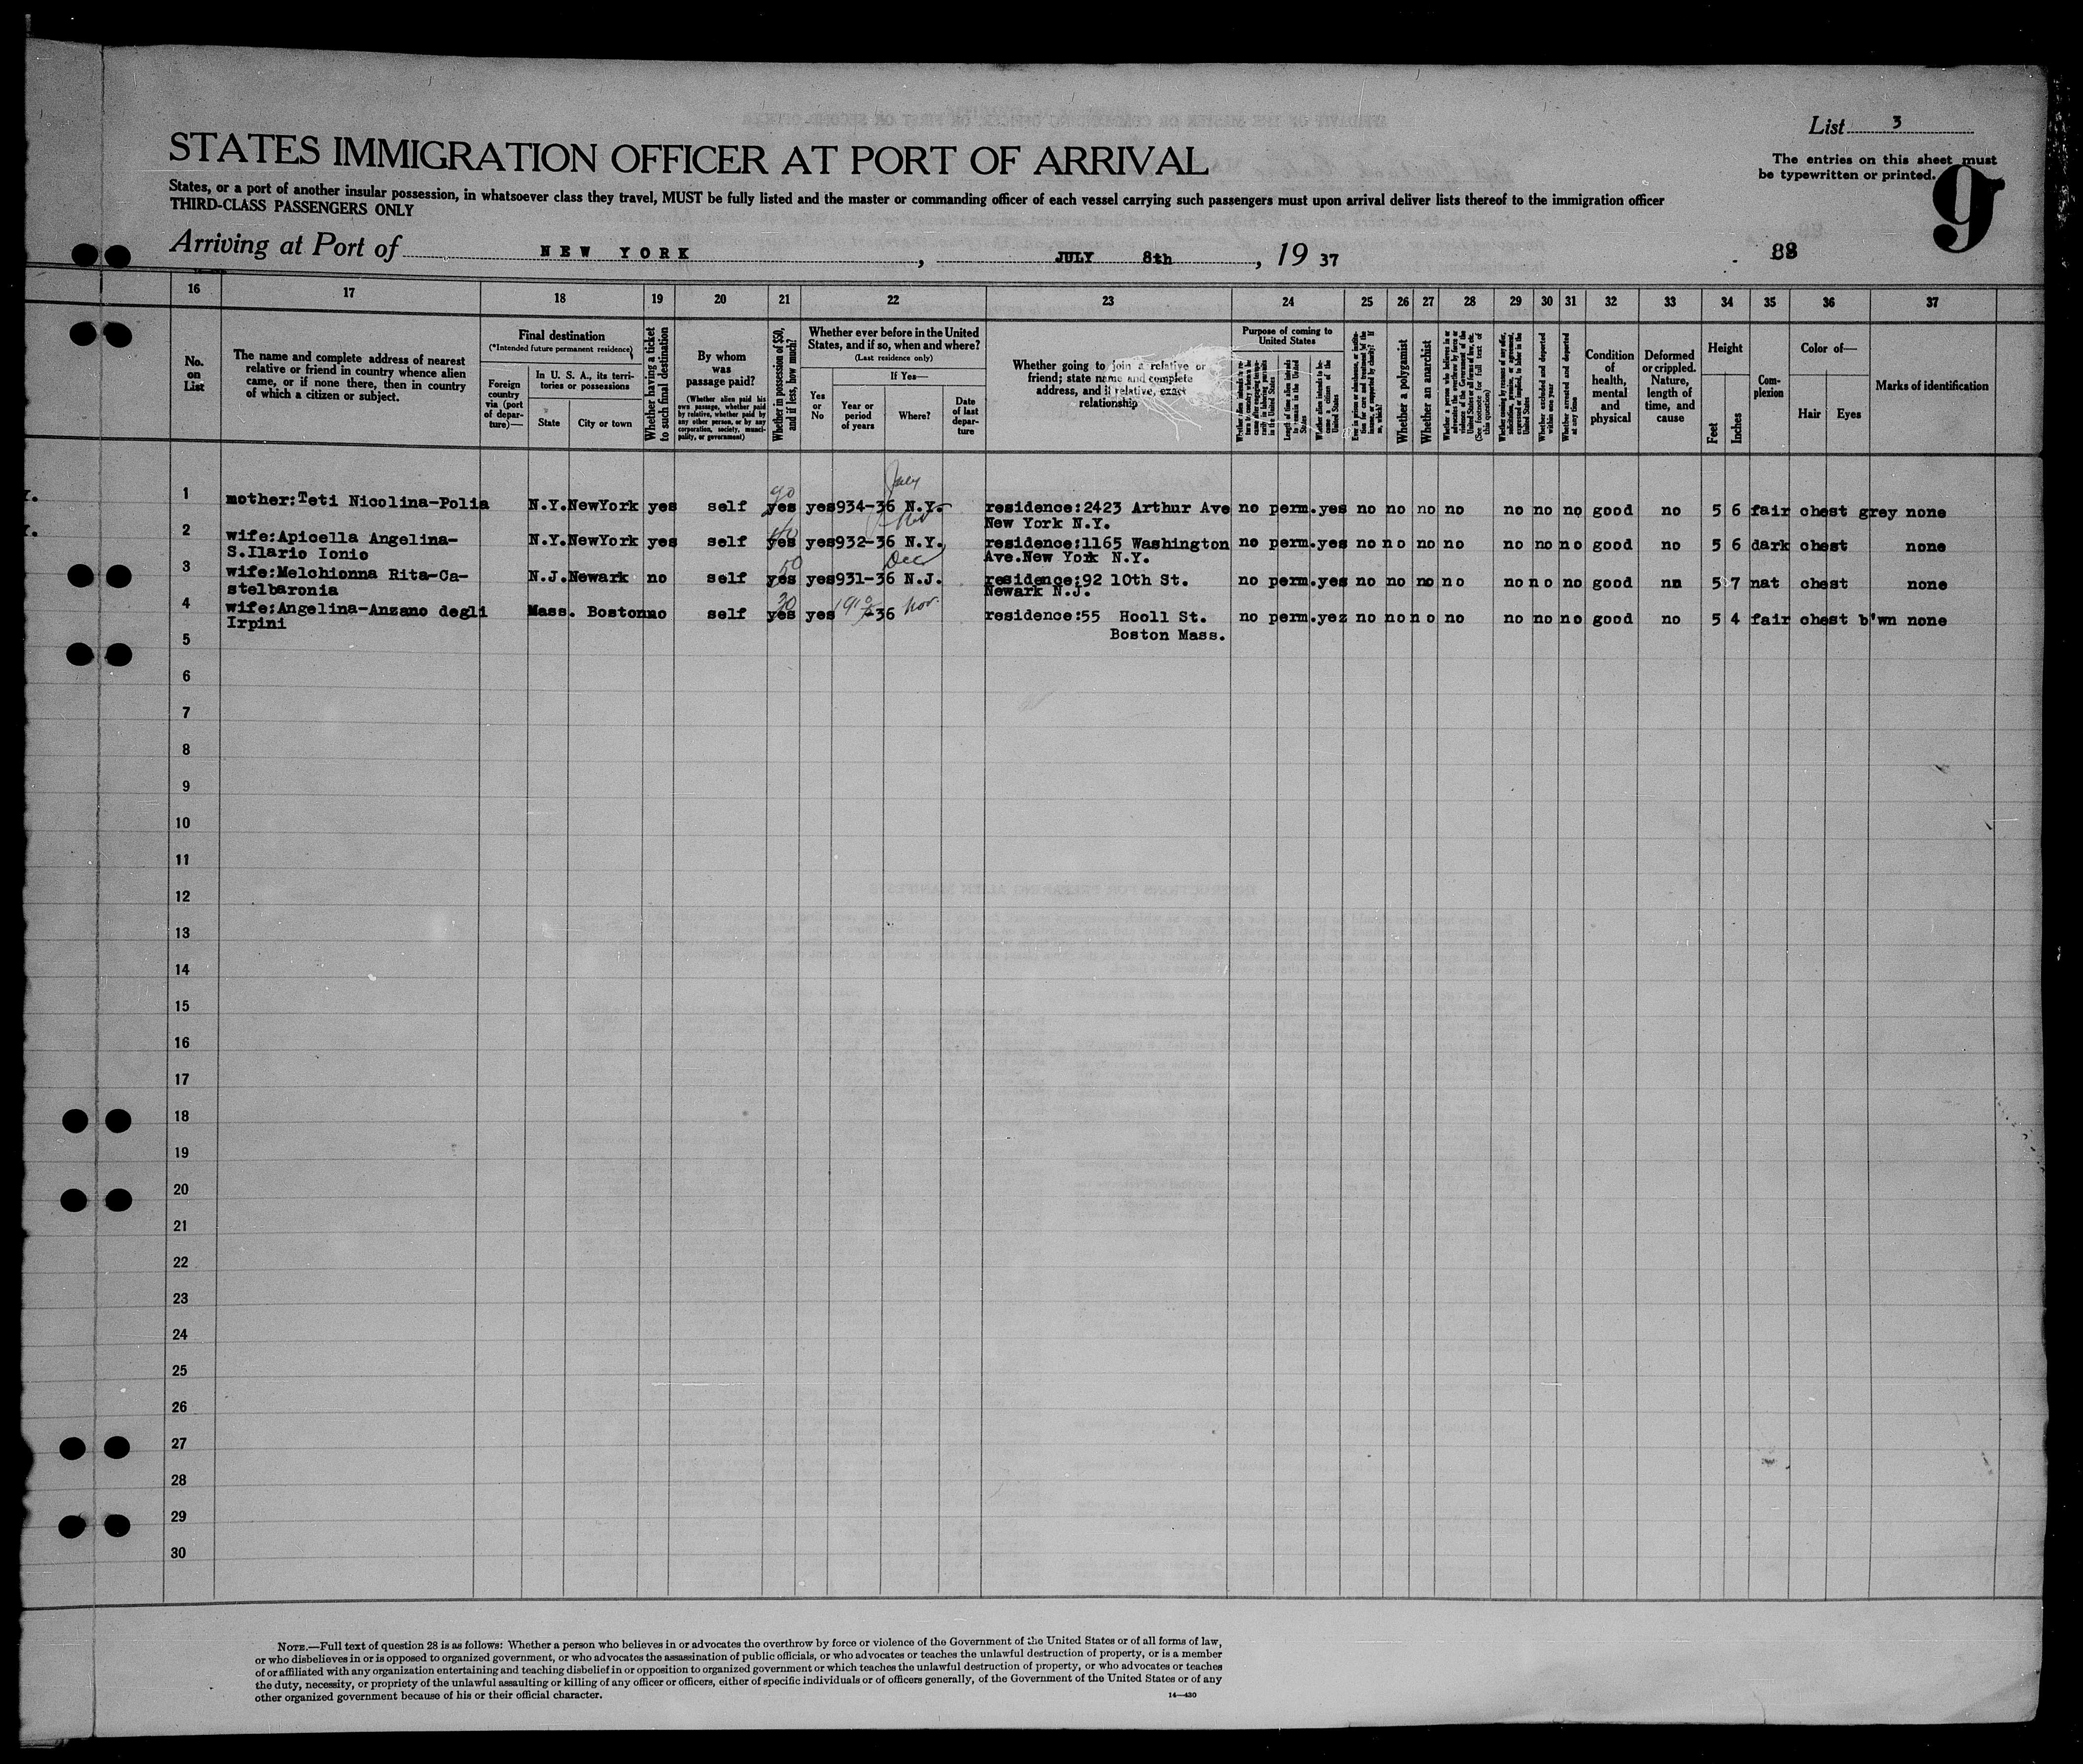 List 3
STATES IMMIGRATION OFFICER AT PORT OF ARRIVAL
The entries on this sheet must
be typewritten or printed.
9
States, or a port of another insular possession, in whatsoever class they travel, MUST be fully listed and the master or commanding officer of each vessel carrying such passengers must upon arrival deliver lists thereof to the immigration officer
THIRD-CLASS PASSENGERS ONLY
Arriving at Port of NEW YORK, JULY 8th, 19 37
88
16 17 18 19 20 21 22 23 24 25 26 27 28 29 30 31 32 33 34 35 36 37
No. on List
The name and complete address of nearest relative or friend in country whence alien came, or if none there, then in country of which a citizen or subject.
Final destination
(*Intended future permanent residence)
Foreign country via (port of departure)—
In U. S. A., its territories or possessions
State
City or town
Whether having a ticket to such final destination
By whom was passage paid?
(Whether alien paid his own passage, whether paid by relative, whether paid by any other person, or by any corporation, society, municipality, or government)
Whether in possession of $50, and if less, how much?
Whether ever before in the United States, and if so, when and where?
(Last residence only)
Yes or No
If Yes—
Year or period of years
Where?
Date of last departure
Whether going to join a relative or friend; state name and complete address, and if relative, exact relationship
Purpose of coming to United States
Length of time alien intends to remain in the United States
Whether alien intends to become a citizen of the United States
Whether a polygamist
Whether an anarchist
(See footnote for full text of this question)
Whether excluded and deported within one year
Whether arrested and deported at any time
Condition of health, mental and physical
Deformed or crippled. Nature, length of time, and cause
Height
Feet
Inches
Complexion
Color of—
Hair
Eyes
Marks of identification
July
90
1 mother:Teti Nicolina-Polia N.Y. NewYork yes self yes yes 934-36 N.Y. residence:2423 Arthur Ave no perm. yes no no no no no no no good no 5 6 fair chest grey none
New York N.Y.
2 wife:Apicella Angelina- N.Y. NewYork yes self yes yes 932-36 N.Y. residence:1165 Washington no perm. yes no no no no no no no good no 5 6 dark chest none
S.Ilario Ionio Ave.New York N.Y.
Dec
50
3 wife:Melchionna Rita-Ca- N.J. Newark no self yes yes 931-36 N.J. residence:92 10th St. no perm. yes no no no no no no no good no 5 7 nat chest none
stelbaronia Newark N.J.
30
4 wife:Angelina-Anzano degli Mass. Boston no self yes yes -36 Nov. residence:55 Hooll St. no perm. yez no no no no no no no good no 5 4 fair chest b'wn none
Irpini Boston Mass.
5
6
7
8
9
10
11
12
13
14
15
16
17
18
19
20
21
22
23
24
25
26
27
28
29
30
NOTE.—Full text of question 28 is as follows: Whether a person who believes in or advocates the overthrow by force or violence of the Government of the United States or of all forms of law,
or who disbelieves in or is opposed to organized government, or who advocates the assassination of public officials, or who advocates or teaches the unlawful destruction of property, or is a member
of or affiliated with any organization entertaining and teaching disbelief in or opposition to organized government or which teaches the unlawful destruction of property, or who advocates or teaches
the duty, necessity, or propriety of the unlawful assaulting or killing of any officer or officers, either of specific individuals or of officers generally, of the Government of the United States or of any
other organized government because of his or their official character.
14—430